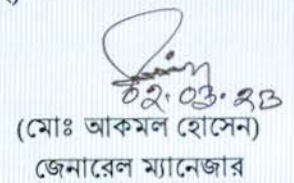 ০২.০৩.২৩
(মোঃ আকমল হোসেন)
জেনারেল ম্যানেজার